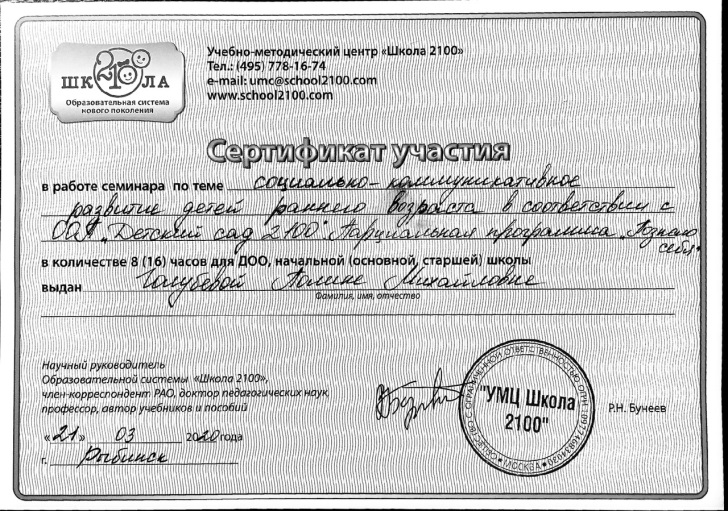 ШК 2100 ЛА
Образовательная система
нового поколения
Учебно-методический центр «Школа 2100»
Тел.: (495) 778-16-74
e-mail: umc@school2100.com
www.school2100.com
Сертификат участия
в работе семинара по теме социально-коммуникативное
развитие детей раннего возраста в соответствии с
ОАП "Детский сад 2100". Парциальная программа "Познаю
себя"
в количестве 8 (16) часов для ДОО, начальной (основной, старшей) школы
выдан Голубевой Полине Михайловне
Фамилия, имя, отчество
Научный руководитель
Образовательной системы «Школа 2100»,
член-корреспондент РАО, доктор педагогических наук,
профессор, автор учебников и пособий
"УМЦ Школа
2100"
ОБЩЕСТВО С ОГРАНИЧЕННОЙ ОТВЕТСТВЕННОСТЬЮ
МОСКВА
Р.Н. Бунеев
«21» 03 2020 года
г. Рыбинск